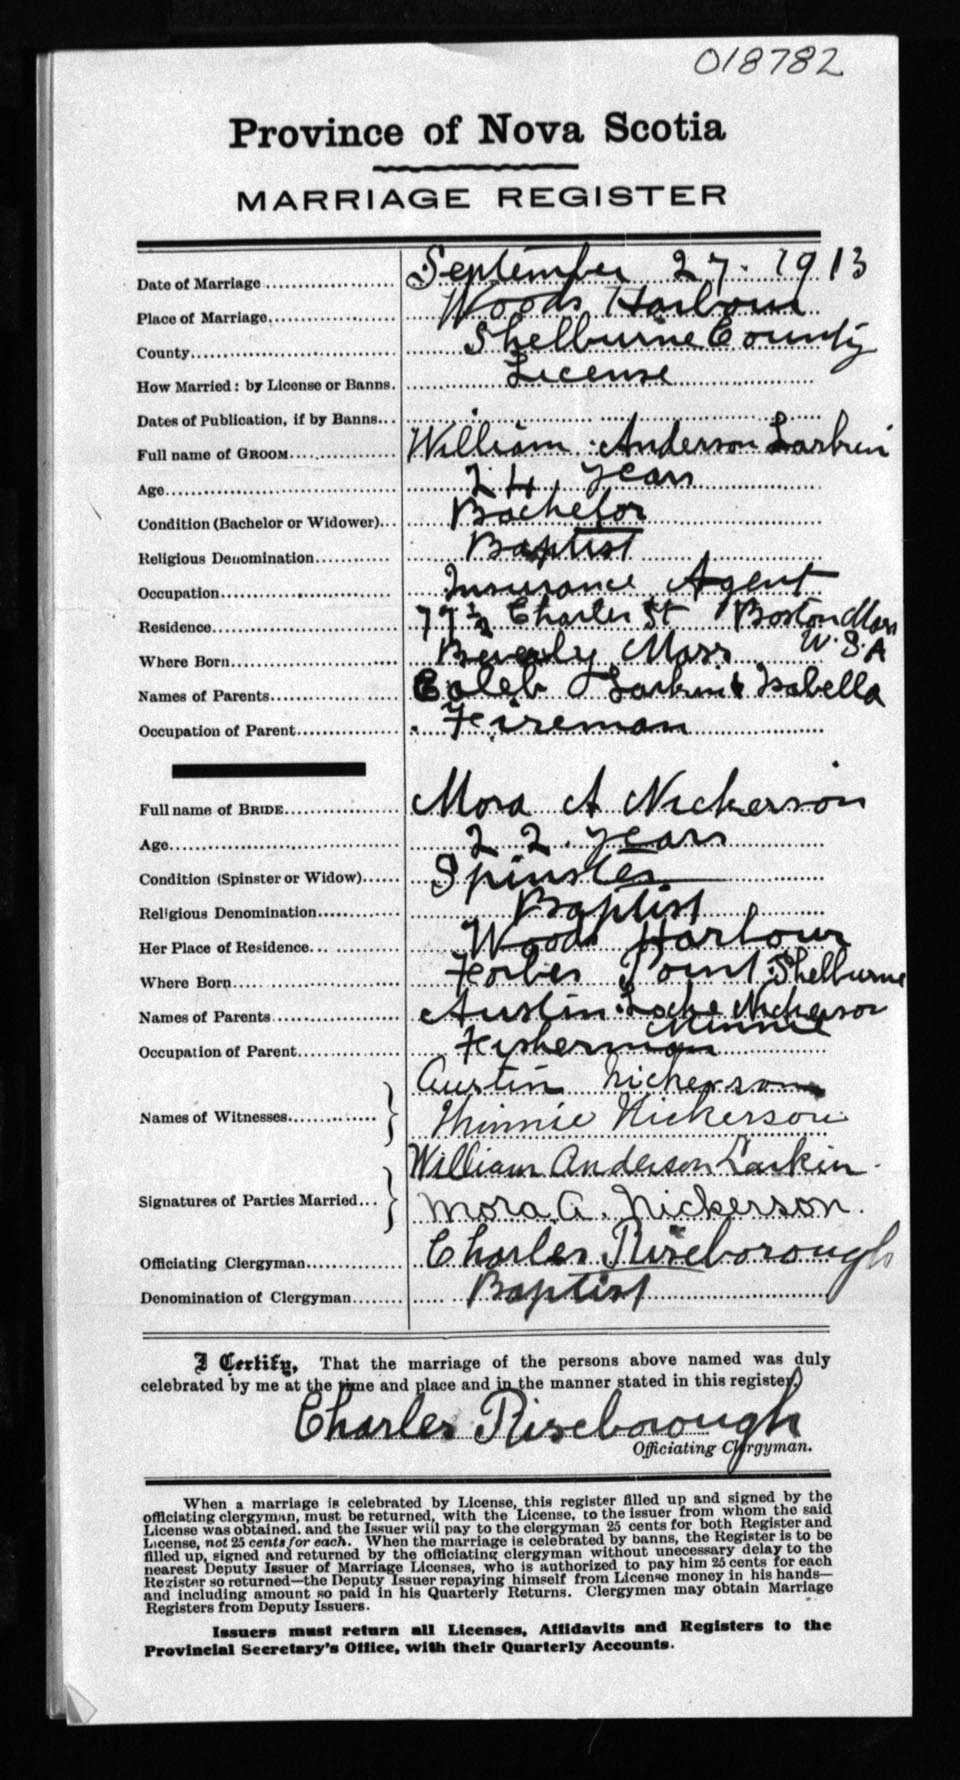 018782
Province of Nova Scotia
MARRIAGE REGISTER
Date of Marriage September 27. 1913
Place of Marriage, Woods Harbour
County Shelburne County
How Married: by License or Banns. License
Dates of Publication, if by Banns
Full name of GROOM William Anderson Larkin
Age 24 years
Condition (Bachelor or Widower) Bachelor
Religious Denomination Baptist
Occupation Insurance Agent
Residence 77½ Charles St Boston Mass
Where Born Beverly Mass U.S.A
Names of Parents Caleb Larkin & Isabella
Occupation of Parent Fireman
Full name of BRIDE Mora A Nickerson
Age 22 years
Condition (Spinster or Widow) Spinster
Religious Denomination Baptist
Her Place of Residence Woods Harbour
Where Born Forbes Point Shelburne
Names of Parents Austin Locke Nickerson
Minnie
Occupation of Parent Fisherman
Austin Nickerson
Names of Witnesses Minnie Nickerson
William Anderson Larkin
Signatures of Parties Married Mora A. Nickerson.
Officiating Clergyman Charles Riseborough
Denomination of Clergyman Baptist
I Certify, That the marriage of the persons above named was duly
celebrated by me at the time and place and in the manner stated in this register.
Charles Riseborough
Officiating Clergyman.
When a marriage is celebrated by License, this register filled up and signed by the
officiating clergyman, must be returned, with the License, to the issuer from whom the said
License was obtained. and the Issuer will pay to the clergyman 25 cents for both Register and
License, not 25 cents for each. When the marriage is celebrated by banns, the Register is to be
filled up, signed and returned by the officiating clergyman without unnecessary delay to the
nearest Deputy Issuer of Marriage Licenses, who is authorized to pay him 25 cents for each
Register so returned—the Deputy Issuer repaying himself from License money in his hands—
and including amount so paid in his Quarterly Returns. Clergymen may obtain Marriage
Registers from Deputy Issuers.
Issuers must return all Licenses, Affidavits and Registers to the
Provincial Secretary's Office, with their Quarterly Accounts.